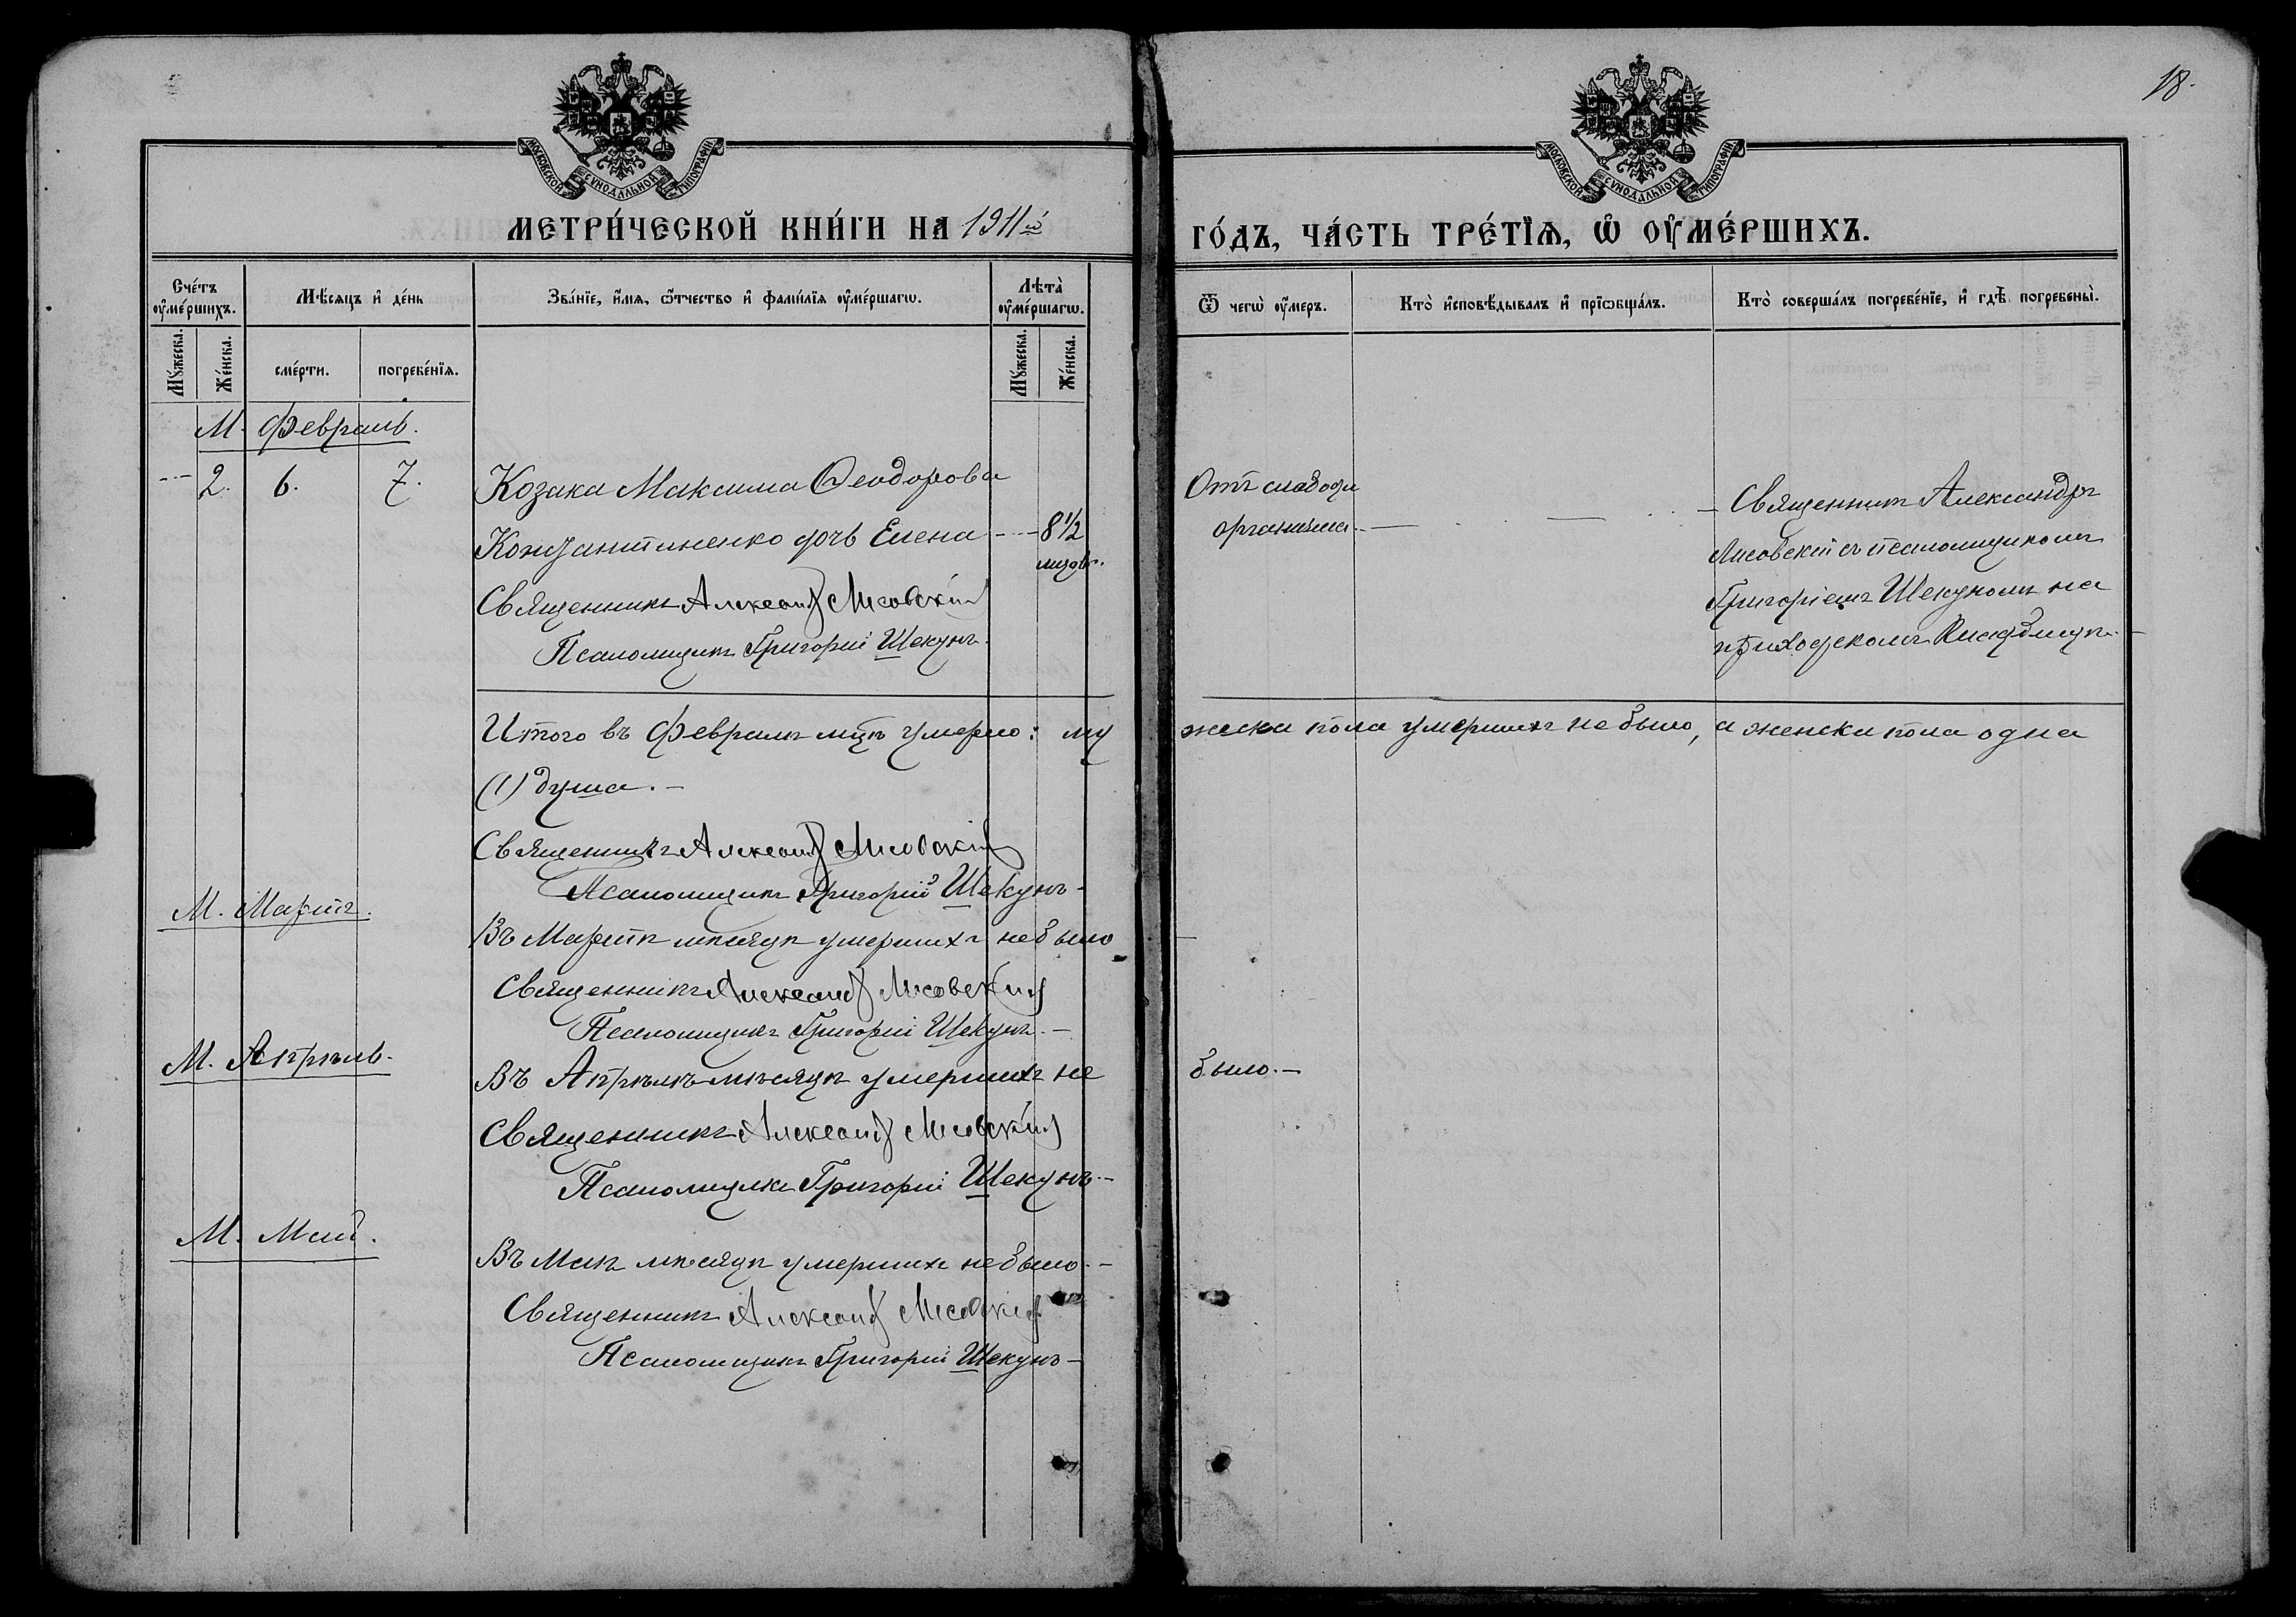 18.
МОСКОВСКОЙ СѴНОДАЛЬНОЙ ТИПОГРАФІИ
МОСКОВСКОЙ СѴНОДАЛЬНОЙ ТИПОГРАФІИ
МЕТРИ́ЧЕСКОЙ КНИ́ГИ НА 1911й
ГО́ДЪ, ЧА́СТЬ ТРЕ́ТЇѦ, Ѡ҆ ОУ҆МЕ́РШИХЪ.
Сче́тъ оу҆ме́ршихъ.
Мѣ́сѧцъ и҆ де́нь
Зва́нїе, и҆́мѧ, ѻ҆́тчество и҆ фами́лїѧ оу҆ме́ршагѡ.
Лѣ̑та оу҆ме́ршагѡ.
Ѿ чегѡ̀ оу҆́меръ.
Кто̀ и҆сповѣ́дывалъ и҆ прїѡбща́лъ.
Кто̀ соверша́лъ погребе́нїе, и҆ гдѣ̀ погребены̀.
Мꙋ́жеска.
Же́нска.
сме́рти.
погребе́нїѧ.
Мꙋ́жеска.
Же́нска.
М. Февраль.
2. 6. 7. Козака Максима Ѳеодорова
Константиненко дочь Елена 8½
мѣсяц.
Священникъ Александръ Лисовскій
Псаломщикъ Григорій Шекунъ.
Отъ слабости
организма.
Священникъ Александръ
Лисовскій съ псаломщикомъ
Григоріемъ Шекуномъ на
приходскомъ кладбищѣ.
Итого въ Февралѣ мцѣ умерло: му
жеска пола умершихъ не было, а женска пола одна
(1) душа.
Священникъ Александръ Лисовскій
Псаломщикъ Григорій Шекунъ
М. Мартъ.
Въ Мартѣ мѣсяцѣ умершихъ не было
Священникъ Александръ Лисовскій
Псаломщикъ Григорій Шекунъ.
М. Апрѣль.
Въ Апрѣлѣ мѣсяцѣ умершихъ не
было.
Священникъ Александръ Лисовскій
Псаломщикъ Григорій Шекунъ.
М. Май.
Въ Маѣ мѣсяцѣ умершихъ не было.
Священникъ Александръ Лисовскій
Псаломщикъ Григорій Шекунъ